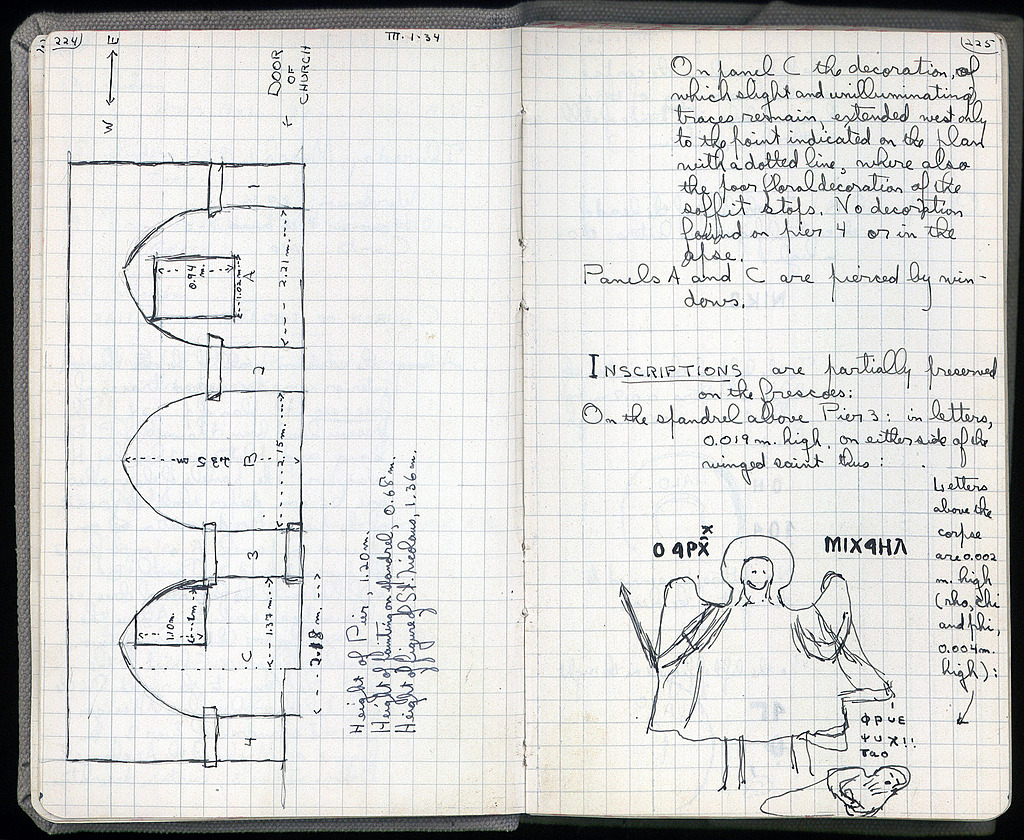 224
III.1.34
W E
DOOR
OF
CHURCH
1
0.94
m.
1.02m
A
2.21 m.
2
2.35 m
B
2.15m.
3
1.10m.
C
1.37m
2.18 m.
4
Height of Pier, 1.20m.
Height of painting on spandrel, 0.65m.
Height of figure of St. Nicolaus, 1.36m.
225
On panel C the decoration, of
which slight and unilluminating
traces remain, extended west only
to the point indicated on the plan
with a dotted line, where also
the poor floral decoration of the
soffit stops. No decoration
found on pier 4 or in the
apse.
Panels A and C are pierced by win-
dows.
INSCRIPTIONS are partially preserved
on the frescoes:
On the spandrel above Pier 3: in letters,
0.019m. high, on either side of the
winged saint thus:
Letters
above the
corpse
are 0.002
m. high
(rho, chi
and phi,
0.004m.
high):
Ο ΑΡΧ
Χ
ΜΙΧΑΗΛ
ΦΡυΕ
ΨυΧ!!
Ταο